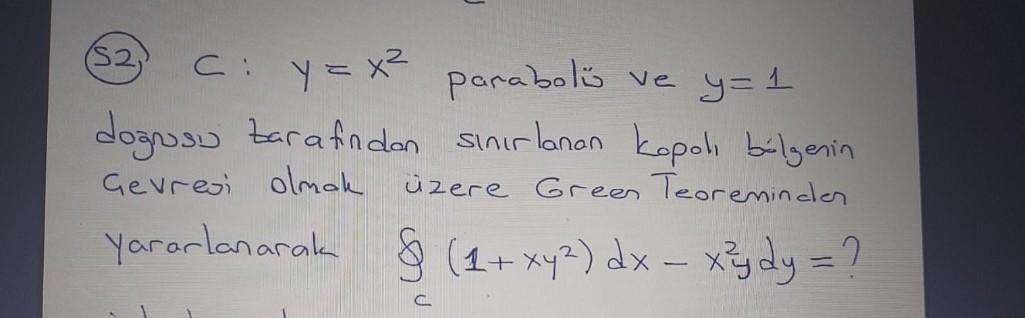 S2) C: y = x² parabolü ve y = 1
doğrusu tarafından sınırlanan kapalı bölgenin
Çevresi olmak üzere Green Teoreminden
yararlanarak ∮_C (1 + xy²) dx - x²y dy = ?